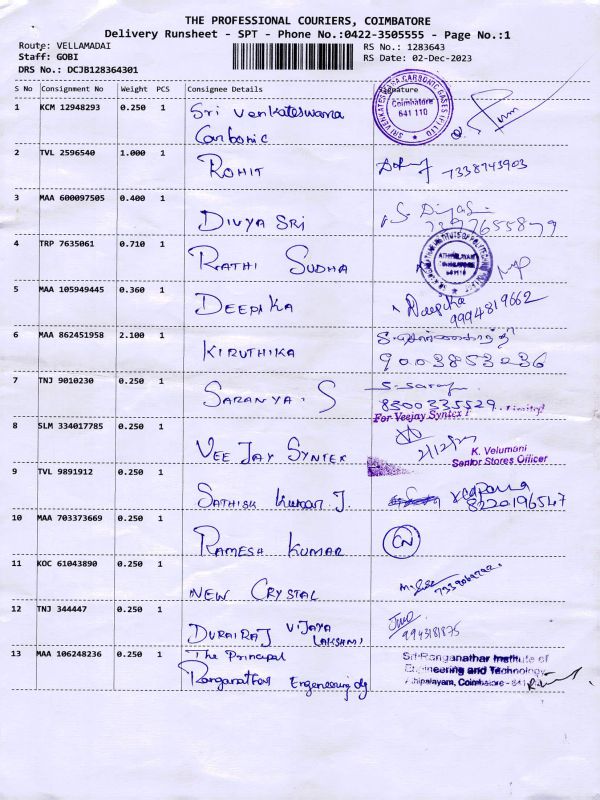 THE PROFESSIONAL COURIERS, COIMBATORE
Delivery Runsheet - SPT - Phone No.:0422-3505555 - Page No.:1
Route: VELLAMADAI RS No.: 1283643
Staff: GOBI RS Date: 02-Dec-2023
DRS No.: DCJB128364301
S No Consignment No Weight PCS Consignee Details Signature
1 KCM 12948293 0.250 1 Sri Venkateswara
Carbonic
SRI VENKATESWARA CARBONIC GASES (P) LTD
Coimbatore
641 110
2 TVL 2596540 1.000 1 ROHIT 7338743903
3 MAA 600097505 0.400 1 DIVYA SRI
4 TRP 7635061 0.710 1 RATHI SUDHA
5 MAA 105949445 0.360 1 DEEPIKA Deepika
9994819662
6 MAA 862451958 2.100 1 KIRUTHIKA
9003853036
7 TNJ 9010230 0.250 1 SARANYA. S
8300335529
For Veejay Syntex Limited
8 SLM 334017785 0.250 1 VEE JAY SYNTEX
K. Velumani
Senior Stores Officer
9 TVL 9891912 0.250 1 SATHISH KUMAR J.
8220196547
10 MAA 703373669 0.250 1 RAMESH KUMAR
11 KOC 61043890 0.250 1 NEW CRYSTAL
12 TNJ 344447 0.250 1 DURAIRAJ VIJAYA
LAKSHMI
9943181875
13 MAA 106248236 0.250 1 The Principal
Ranganathar Engineering clg
Sri Ranganathar Institute of
Engineering and Technology
Athipalayam, Coimbatore - 641